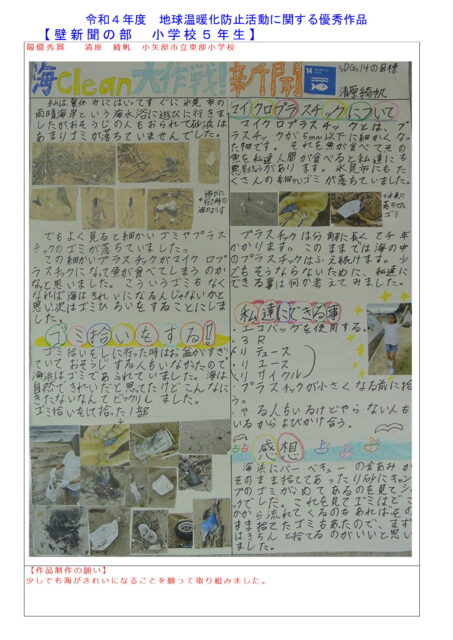 令和4年度 地球温暖化防止活動に関する優秀作品
【壁新聞の部 小学校5年生】
最優秀賞 清原 綺帆 小矢部市立東部小学校
海clean大作戦!新聞
私は夏休みにはいてすぐに氷見市の
雨晴海岸という海水浴に遊びに行きま
したがおそうじの人もおられて砂浜は
あまりゴミが落ちていませんでした。
でもよく見ると細かいゴミやプラス
チックのゴミが落ちていました。
この細かいプラスチックがマイクロプ
ラスチックになって魚が食べてしまうのか
なと思いました。こういうゴミもなく
なれば海はきれいになるんじゃないかと
思い次はひろいをすることにしま
した。
ゴミ拾いをする!!
ゴミ拾いをしに行った時はお盆がすぎ
ていておそうじする人もいなかったので
海浜はゴミであふれていました。海は
自然できれいだと思てたけどこんなに
きたないなんてビックリしました。
ゴミ拾いをして拾った1部
14
SDGs14の目標
清原綺帆
マイクロプラスチックについて
マイクロプラスチックとは、プ
ラスチックが5mm以下に細かくなっ
た物です。それを魚が食べてその
魚を私達人間が食べると私達にも
悪影響があります。氷見市にもた
くさんの細かいゴミが落ちていました。
プラスチックは分解に長くて千年
かかります。このままでは海の中
のプラスチックはふえ続けます。少し
でもそうならないために、私達に
できる事は何か考えてみました。
私達にできる事
・エコバックを使用する。
・3R
リデュース
リユース
リサイクル
・プラスチックが小さくなる前に拾
う。
・やる人もいるけどやらない人も
いるからよびかけ合う。
感想
海浜にバーベキューの金あみが
そのまま捨ててあったり砂にキャン
プのゴミがうめてあるのを見てショッ
クでした。これを見てゴミはどこ
から流れてくるのもあればその
まま捨てたゴミもあたので、まず
はきちんと捨てるのがいいと思い
ました。
【作品制作の願い】
少しでも海がきれいになることを願って取り組みました。